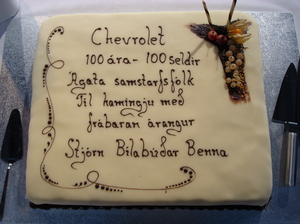 Chevrolet
100 ára - 100 seldir
Ágæta samstarfsfólk
Til hamingju með
frábæran árangur
Stjórn Bílabúðar Benna